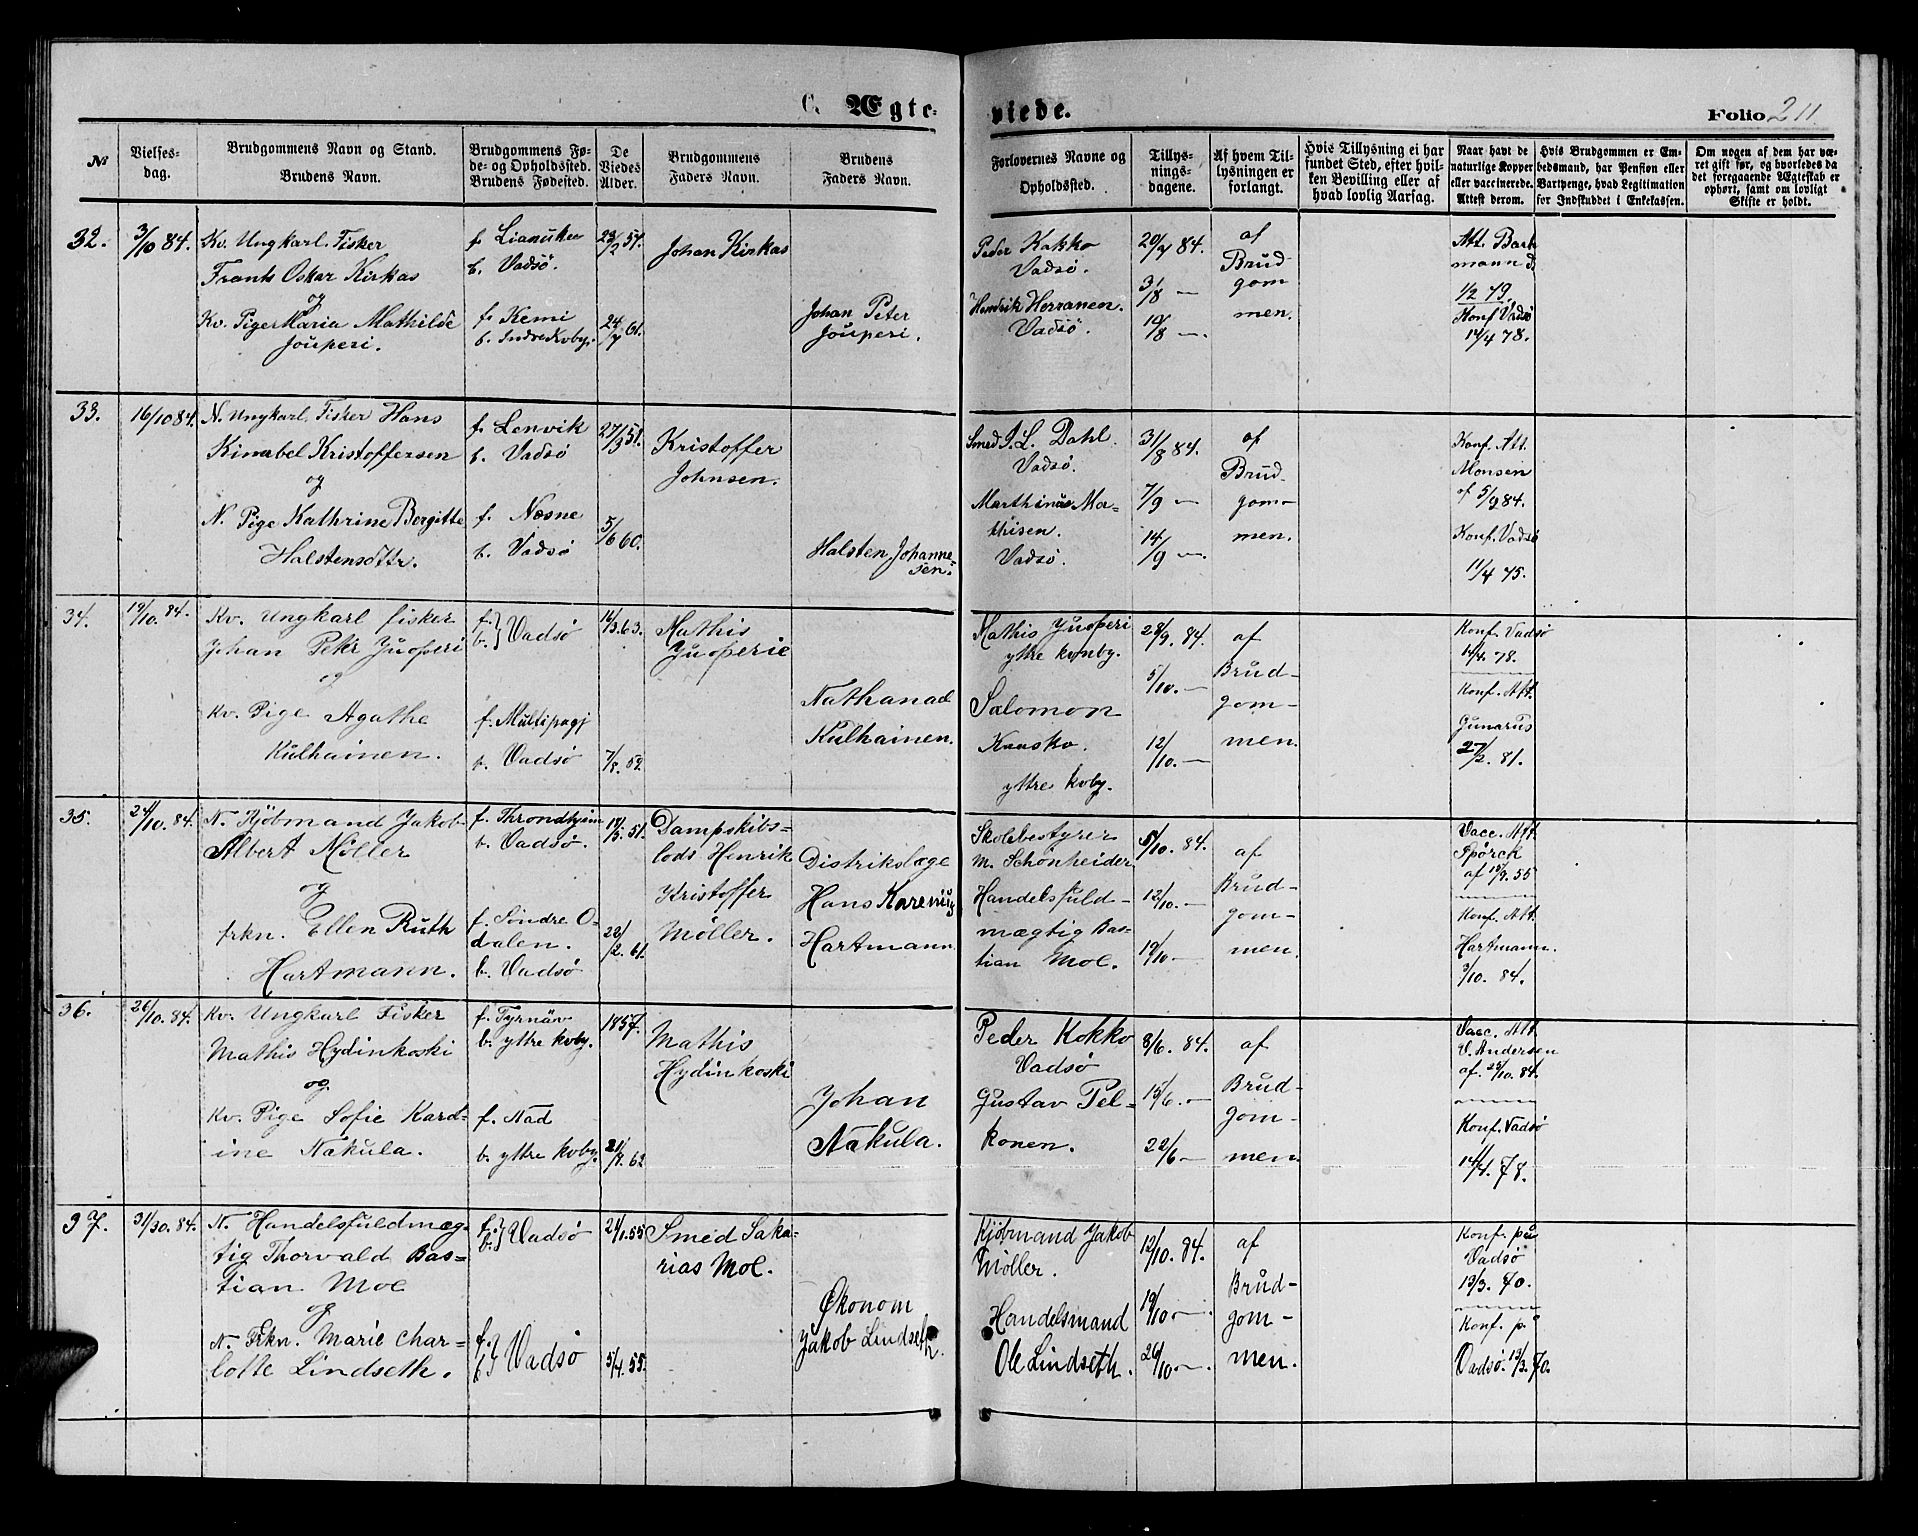 C. Ægte-
viede.
Folio 211.
No
Vielses-
dag.
Brudgommens Navn og Stand.
Brudens Navn.
Brudgommens Fø-
de- og Opholdssted.
Brudens Fødested.
De
Viedes
Alder.
Brudgommens
Faders Navn.
Brudens
Faders Navn.
Forlovernes Navne og
Opholdssted.
Tillys-
nings-
dagene.
Af hvem Til-
lysningen er
forlangt.
Hvis Tillysning ei har
fundet Sted, efter hvil-
ken Bevilling eller af
hvad lovlig Aarsag.
Naar havt de
naturlige Kopper
eller vaccinerede.
Attest derom.
Hvis Brudgommen er Em-
bedsmand, har Pension eller
Vartpenge, hvad Legitimation
for Indskuddet i Enkekassen.
Om nogen af dem har væ-
ret gift før, og hvorledes da
det foregaaende Ægteskab er
ophørt, samt om lovligt
Skifte er holdt.
32.
3/10 84.
Kv. Ungkarl. Fisker
Frants Oskar Kirkas
og
Kv. Pige Maria Mathilde
Jouperi.
f.
b. Vadsø.
f. Kemi
b. Indre Kvby.
24/7 61.
Johan Kirkas
Johan Peter
Jouperi.
Peder Kokko
Vadsø.
Hendrik Herranen.
Vadsø.
20/7 84.
3/8 —
10/8 —.
af
Brud-
gom
men.
Att. Bach
mann
1/2 79.
Konf Vadsø
14/4 78.
33.
16/10 84.
N. Ungkarl. Fisker Hans
Kinabel Kristoffersen
og
N. Pige Kathrine Bergitte
Halstensdttr.
f. Lenvik
b. Vadsø
f. Næsne
b. Vadsø
27/3 51.
5/6 60.
Kristoffer
Johnsen.
Halsten Johanne-
sen.
Smed J. L. Dahl.
Vadsø.
Marthinus Ma-
thisen.
Vadsø.
31/8 84.
7/9 —
14/9 —.
af
Brud-
gom-
men.
Konf. Att.
Monsen
af 5/9 84.
Konf. Vadsø
11/4 75.
34.
19/10. 84.
Kv. Ungkarl fisker
Johan Petr Juoperi
og
Kv. Pige Agathe
Kulhainen.
f.
b.} Vadsø
f. Multipagj
b. Vadsø
16/3. 63.
7/8. 52.
Mathis
Juoperie
Nathanael
Kulhainen.
Mathis Juoperi
yttre kvnby.
Salomon
yttre kvby.
28/9. 84.
5/10. —
12/10. —
af
Brud-
gom-
men.
Konf. Vadsø
14/4. 78.
Konf. Att.
Gunarus
27/2. 81.
35.
24/10. 84.
N. Kjöbmand Jakob
Albert Möller
og
frkn. Ellen Ruth
Hartmann.
f. Throndhjem
b. Vadsø.
f. Söndre O-
dalen.
b. Vadsø
18/5. 51.
22/2. 61.
Dampskibs-
lods Henrik
Kristoffer
Møller.
Distrikslæge
Hans Karenius
Hartmann
Skolebestyrer
M. Schönheider
Handelsfuld-
mægtig Bas-
tian Moe.
5/10. 84.
12/10. —
19/10. —
af
Brud-
gom-
men.
Vacc. Att.
Spörck
af 18/9. 55
Konf. Att.
Hartmann.
3/10. 84.
36.
26/10. 84.
Kv. Ungkarl Fisker
Mathis Hydinkoski
og
Kv. Pige Sofie Kard-
ine Näkula.
f. Tyrnäv
b. yttre kvby.
f. Nad
b. yttre kvby.
1857.
Mathis
Hydinkoski
Johan
Näkula.
Peder Kokko
Vadsø
Gustav Pel-
konen.
8/6. 84.
15/6. —
22/6 —
af
Brud-
gom-
men.
Vacc. Att.
V. Andersen
af. 25/10. 84.
Konf. Vadsø
14/4. 78.
37.
31/30. 84.
N. Handelsfuldmæg-
tig Thorvald Bas-
tian Moe
og
N. Frkn. Marie Char-
lotte Lindseth.
f.
b.} Vadsø
f.
b.} Vadsø
24/1. 55
5/4. 55.
Smed Saka-
rias Moe.
Økonom
Jakob Lindseth.
Kjöbmand Jakob
Møller.
Handelsmand
Ole Lindseth.
12/10. 84.
19/10 —.
26/10 —.
af
Brud-
gom-
men.
Konf. på
Vadsø
13/3. 70.
Konf. p.
Vadsø. 13/3. 70.